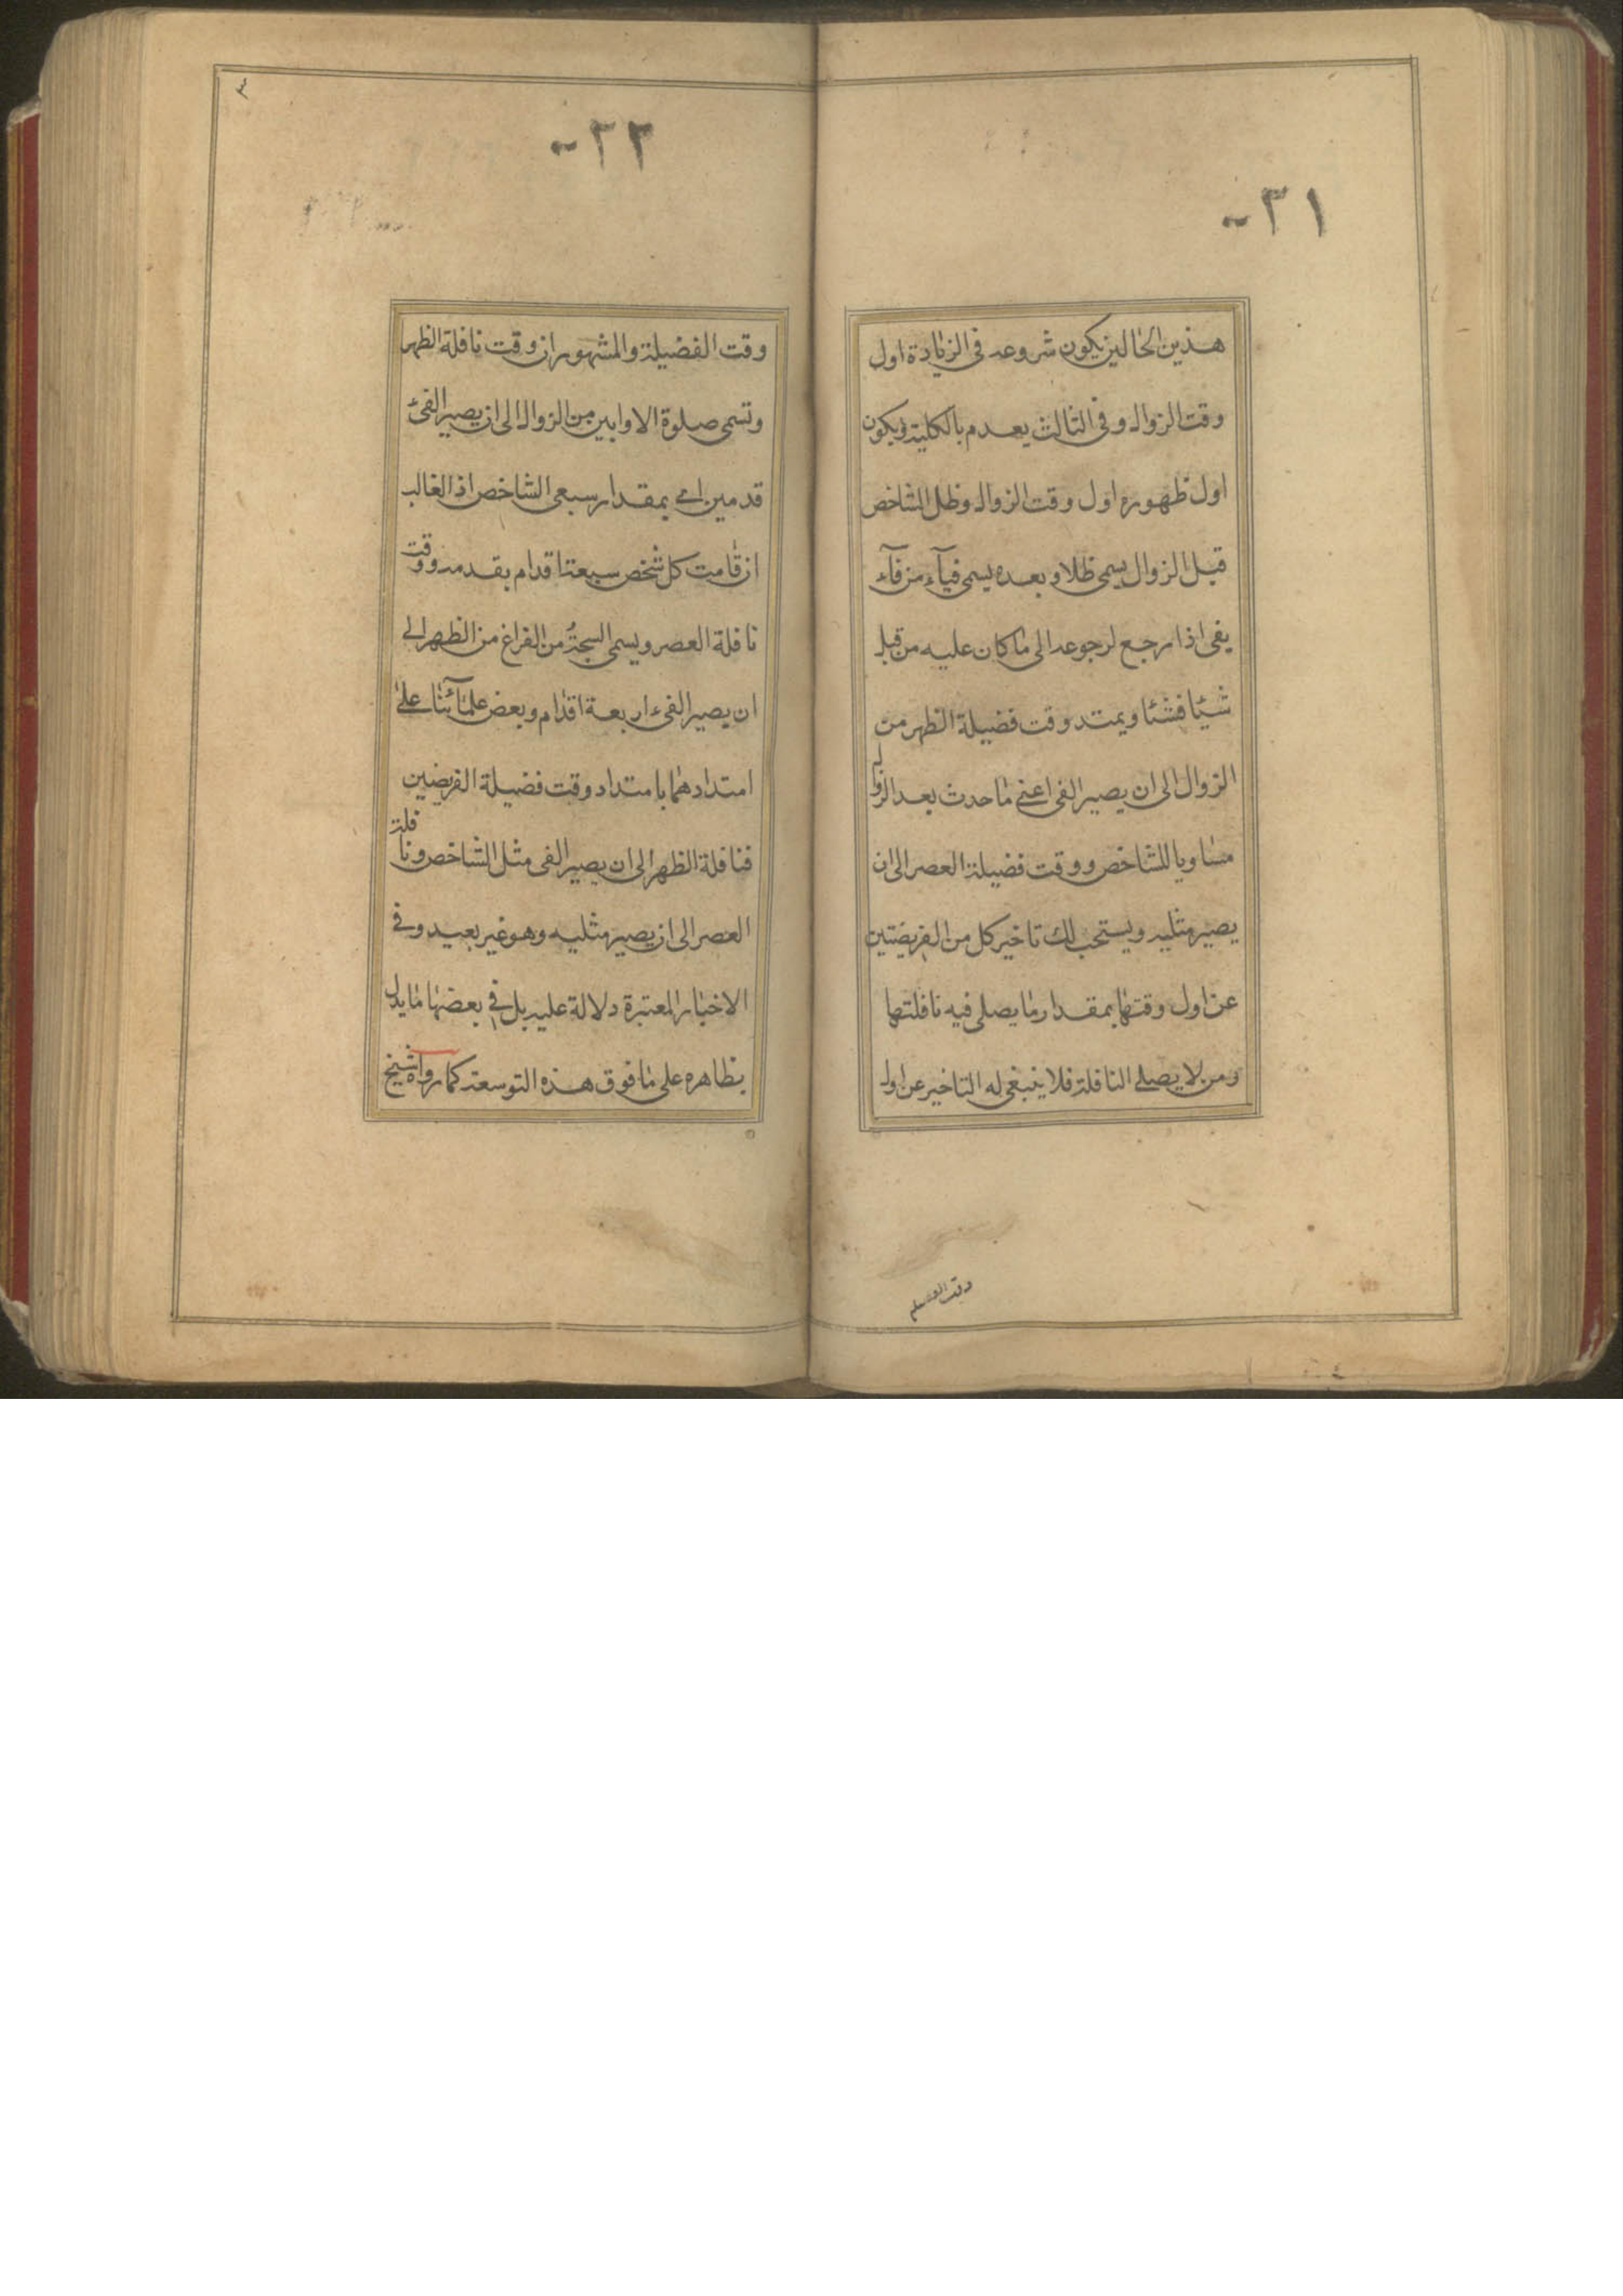 ٣١-
هذين الحالين يكون شروعه في الزيادة اول
وقت الزوال وفي الثالث يعدم بالكلية ويكون
اول ظهوره اول وقت الزوال وظل الشاخص
قبل الزوال يسمى ظلا وبعده يسمى فيآء من فآء
يفئ اذا رجع لرجوعه الى ما كان عليه من قبل
شيئا فشئا ويمتد وقت فضيلة الظهر من
الزوال الى ان يصير الفئ اعني ما حدث بعد الزوال
مساويا للشاخص ووقت فضيلة العصر الى ان
يصير مثليه ويستحب لك تاخير كل من الفريضتين
عن اول وقتها بمقدار ما يصلى فيه نافلتها
ومن لا يصلي النافلة فلا ينبغي له التاخير عن اول
٣٢-
٣
وقت الفضيلة والمشهور ان وقت نافلة الظهر
وتسمى صلوة الاوابين من الزوال الى ان يصير الفئ
قدمين اي بمقدار سبعي الشاخص اذ الغالب
ان قامت كل شخص سبعة اقدام بقدمه ووقت
نافلة العصر ويسمى السبحة من الفراغ من الظهر الى
ان يصير الفئ اربعة اقدام وبعض علمآئنا على
امتدادهما بامتداد وقت فضيلة الفريضين
فنافلة الظهر الى ان يصير الفئ مثل الشاخص ونافلة
العصر الى ان يصير مثليه وهو غير بعيد وفي
الاخبار المعتبرة دلالة عليه بل في بعضها ما يدل
بظاهره على ما فوق هذه التوسعة كما رواه شيخ